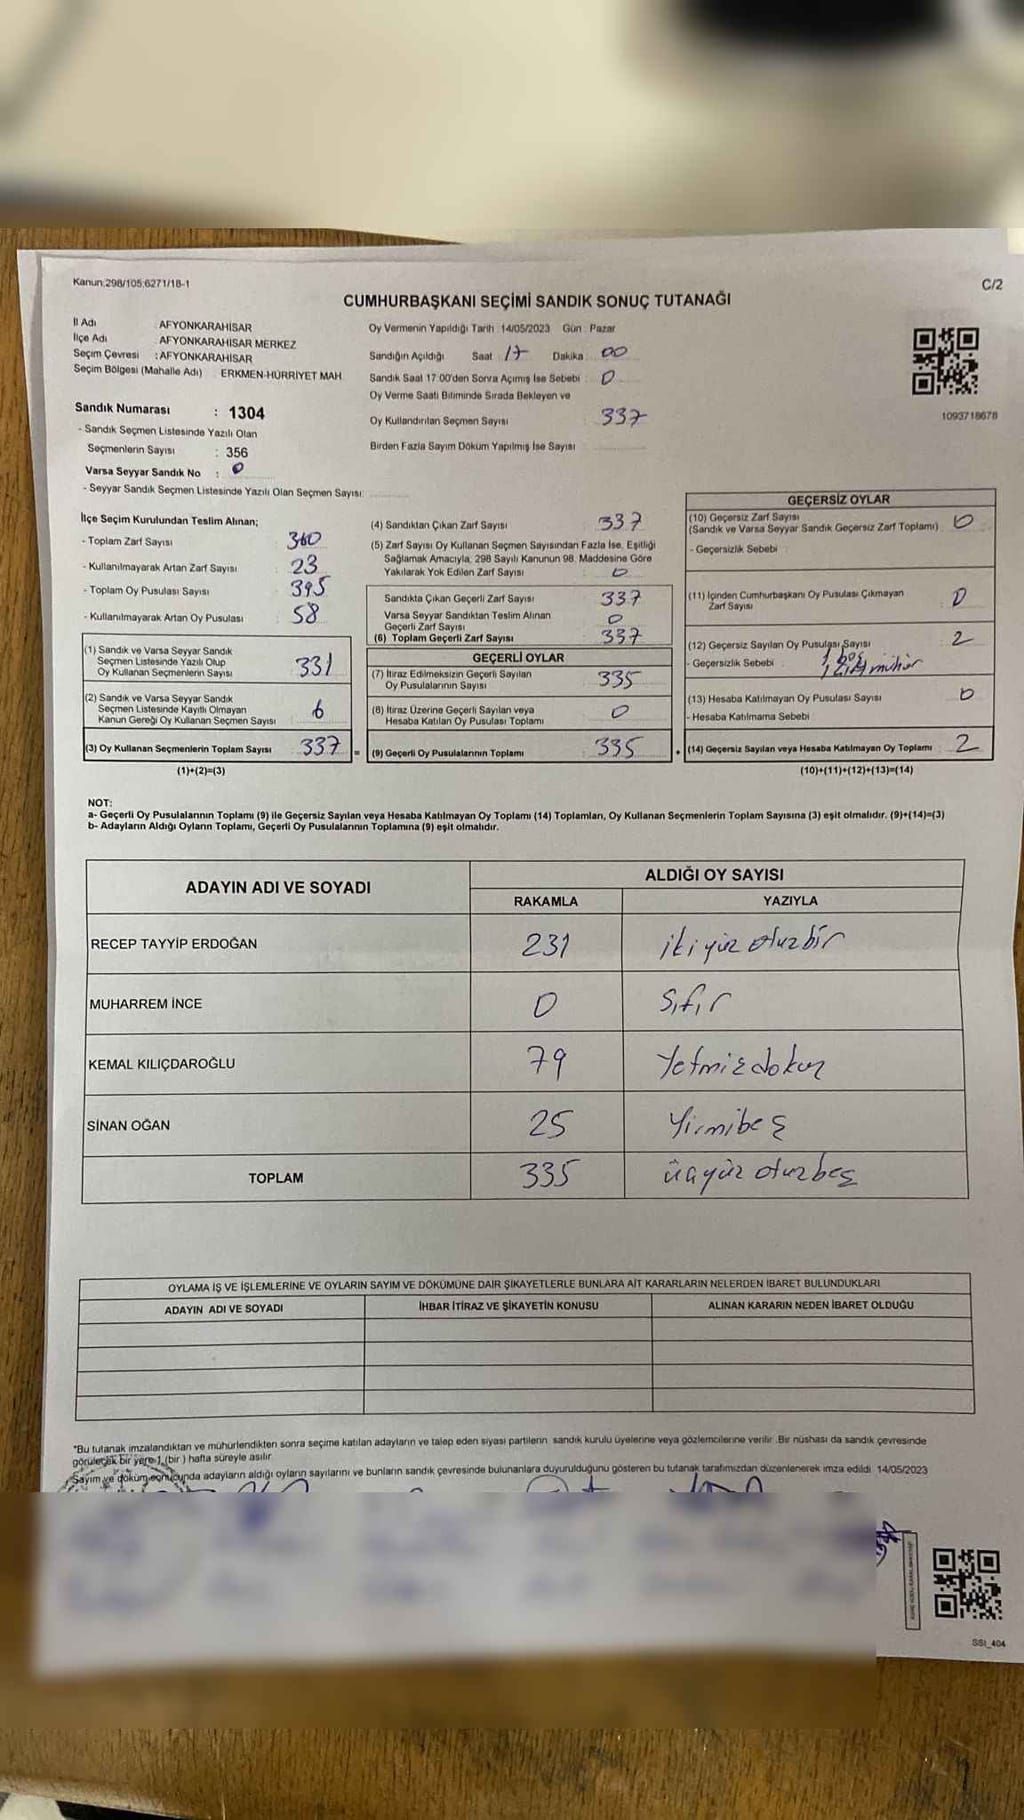 Kanun:298/105;6271/18-1
C/2
CUMHURBAŞKANI SEÇİMİ SANDIK SONUÇ TUTANAĞI
İl Adı : AFYONKARAHİSAR
İlçe Adı : AFYONKARAHİSAR MERKEZ
Seçim Çevresi : AFYONKARAHİSAR
Seçim Bölgesi (Mahalle Adı) ERKMEN-HÜRRİYET MAH.
Sandık Numarası : 1304
- Sandık Seçmen Listesinde Yazılı Olan
Seçmenlerin Sayısı : 356
Varsa Seyyar Sandık No : 0
- Seyyar Sandık Seçmen Listesinde Yazılı Olan Seçmen Sayısı:
Oy Vermenin Yapıldığı Tarih :14/05/2023 Gün : Pazar
Sandığın Açıldığı Saat 17 Dakika 00
Sandık Saat 17:00'den Sonra Açımış İse Sebebi : 0
Oy Verme Saati Bitiminde Sırada Bekleyen ve
Oy Kullandırılan Seçmen Sayısı 337
Birden Fazla Sayım Döküm Yapılmış İse Sayısı
1093718678
İlçe Seçim Kurulundan Teslim Alınan;
- Toplam Zarf Sayısı 360
- Kullanılmayarak Artan Zarf Sayısı 23
- Toplam Oy Pusulası Sayısı 395
- Kullanılmayarak Artan Oy Pusulası 58
(1) Sandık ve Varsa Seyyar Sandık
Seçmen Listesinde Yazılı Olup
Oy Kullanan Seçmenlerin Sayısı 331
(2) Sandık ve Varsa Seyyar Sandık
Seçmen Listesinde Kayıtlı Olmayan
Kanun Gereği Oy Kullanan Seçmen Sayısı 6
(3) Oy Kullanan Seçmenlerin Toplam Sayısı 337 =
(1)+(2)=(3)
(4) Sandıktan Çıkan Zarf Sayısı 337
(5) Zarf Sayısı Oy Kullanan Seçmen Sayısından Fazla İse, Eşitliği
Sağlamak Amacıyla, 298 Sayılı Kanunun 98. Maddesine Göre
Yakılarak Yok Edilen Zarf Sayısı 0
Sandıkta Çıkan Geçerli Zarf Sayısı 337
Varsa Seyyar Sandıktan Teslim Alınan
Geçerli Zarf Sayısı 0
(6) Toplam Geçerli Zarf Sayısı 337
GEÇERLİ OYLAR
(7) İtiraz Edilmeksizin Geçerli Sayılan
Oy Pusulalarının Sayısı 335
(8) İtiraz Üzerine Geçerli Sayılan veya
Hesaba Katılan Oy Pusulası Toplamı 0
(9) Geçerli Oy Pusulalarının Toplamı 335 +
GEÇERSİZ OYLAR
(10) Geçersiz Zarf Sayısı
(Sandık ve Varsa Seyyar Sandık Geçersiz Zarf Toplamı) 0
- Geçersizlik Sebebi :
(11) İçinden Cumhurbaşkanı Oy Pusulası Çıkmayan
Zarf Sayısı 0
(12) Geçersiz Sayılan Oy Pusulası Sayısı 2
- Geçersizlik Sebebi 1 boş
mühür
(13) Hesaba Katılmayan Oy Pusulası Sayısı 0
- Hesaba Katılmama Sebebi :
(14) Geçersiz Sayılan veya Hesaba Katılmayan Oy Toplamı 2
(10)+(11)+(12)+(13)=(14)
NOT:
a- Geçerli Oy Pusulalarının Toplamı (9) ile Geçersiz Sayılan veya Hesaba Katılmayan Oy Toplamı (14) Toplamları, Oy Kullanan Seçmenlerin Toplam Sayısına (3) eşit olmalıdır. (9)+(14)=(3)
b- Adayların Aldığı Oyların Toplamı, Geçerli Oy Pusulalarının Toplamına (9) eşit olmalıdır.
ADAYIN ADI VE SOYADI ALDIĞI OY SAYISI
RAKAMLA YAZIYLA
RECEP TAYYİP ERDOĞAN 231 ikiyüz otuzbir
MUHARREM İNCE 0 Sıfır
KEMAL KILIÇDAROĞLU 79 Yetmişdokuz
SİNAN OĞAN 25 Yirmibeş
TOPLAM 335 üçyüz otuzbeş
OYLAMA İŞ VE İŞLEMLERİNE VE OYLARIN SAYIM VE DÖKÜMÜNE DAİR ŞİKAYETLERLE BUNLARA AİT KARARLARIN NELERDEN İBARET BULUNDUKLARI
ADAYIN ADI VE SOYADI İHBAR İTİRAZ VE ŞİKAYETİN KONUSU ALINAN KARARIN NEDEN İBARET OLDUĞU
*Bu tutanak imzalandıktan ve mühürlendikten sonra seçime katılan adayların ve talep eden siyasi partilerin sandık kurulu üyelerine veya gözlemcilerine verilir. Bir nüshası da sandık çevresinde
görülecek bir yere 1 (bir ) hafta süreyle asılır.
Sayım ve döküm sonucunda adayların aldığı oyların sayılarını ve bunların sandık çevresinde bulunanlara duyurulduğunu gösteren bu tutanak tarafımızdan düzenlenerek imza edildi. 14/05/2023
SSI_404